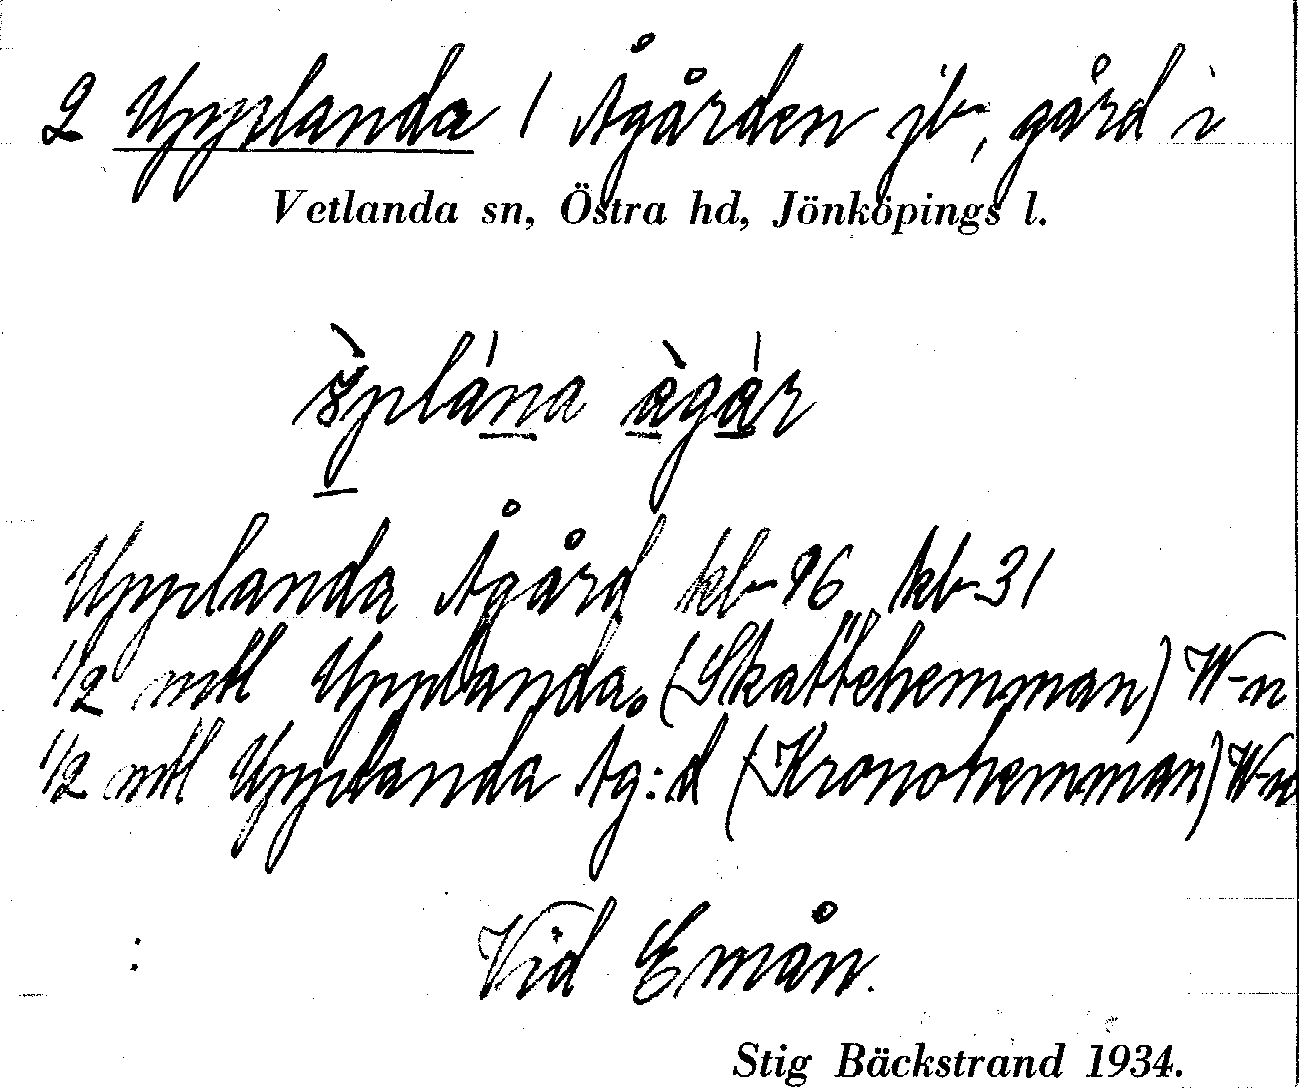 2 Upplanda / Ågården jb, gård i
Vetlanda sn, Östra hd, Jönköpings l.
Upplanda Ågård kb-96 kb-31
1/2 mtl Upplanda. (Skattehemman) W-n
1/2 mtl Upplanda Åg:d (Kronohemman) W-n
Vid Emån.
Stig Bäckstrand 1934.